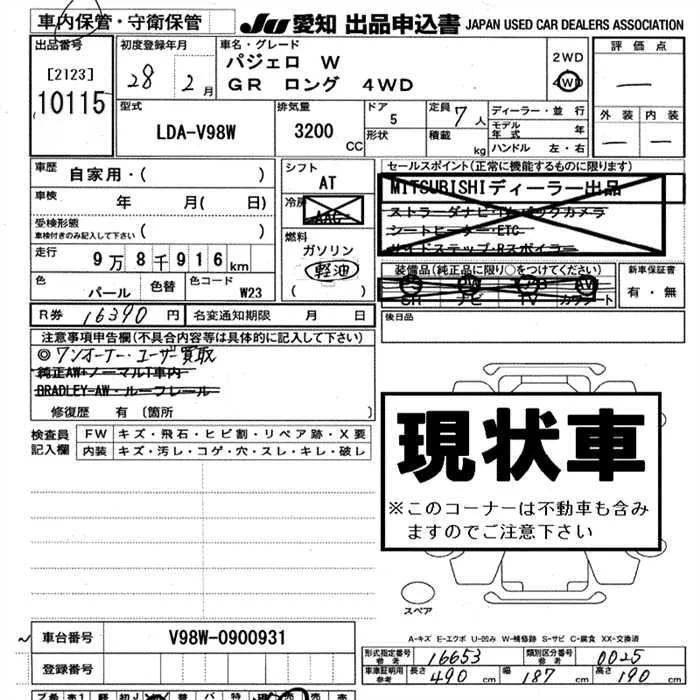 車内保管・守衛保管
JU 愛知 出品申込書 JAPAN USED CAR DEALERS ASSOCIATION
出品番号
[2123]
10115
初度登録年月
28 年 2 月
車名・グレード
パジェロ W
GR ロング 4WD
2WD
4WD
評価点
—
外装 内装
— —
型式
LDA-V98W
排気量
3200 CC
ドア
5
形状
定員 7 人
積載 kg
ディーラー・並行
モデル年式 年
ハンドル 左・右
車歴
自家用・( )
車検
年 月( 日)
受検形態
車検付きのみ記入して下さい ( )
走行
9万8千916km
色
パール
色替
色コード
W23
シフト
AT
冷房
AAC
燃料
ガソリン
軽油
( )
セールスポイント(正常に機能するものに限ります)
MITSUBISHIディーラー出品
ストラーダナビ・TV・バックカメラ
シートヒーター・ETC
サイドステップ・Rスポイラー
装備品(純正品に限り○をつけてください)
SR ナビ TV カワシート
新車保証書
有・無
R券 16390 円
名変通知期限 月 日
後日品
注意事項申告欄(不具合内容等は具体的に記入して下さい)
◎ワンオーナー・ユーザー買取
純正AW+ノーマルT車内
BRADLEY-AW・ルーフレール
修復歴 有 (箇所 )
検査員記入欄
FW キズ・飛石・ヒビ割・リペア跡・X要
内装 キズ・汚レ・コゲ・穴・スレ・キレ・破レ
現状車
※このコーナーは不動車も含み
ますのでご注意下さい
スペア
A-キズ E-エクボ U-凹み W-補修跡 S-サビ C-腐食 XX-交換済
車台番号 V98W-0900931
登録番号
形式指定番号 参考 16653
類別区分番号 参考 0025
車庫証明用 参考 長さ 490 cm 幅 187 cm 高さ 190 cm